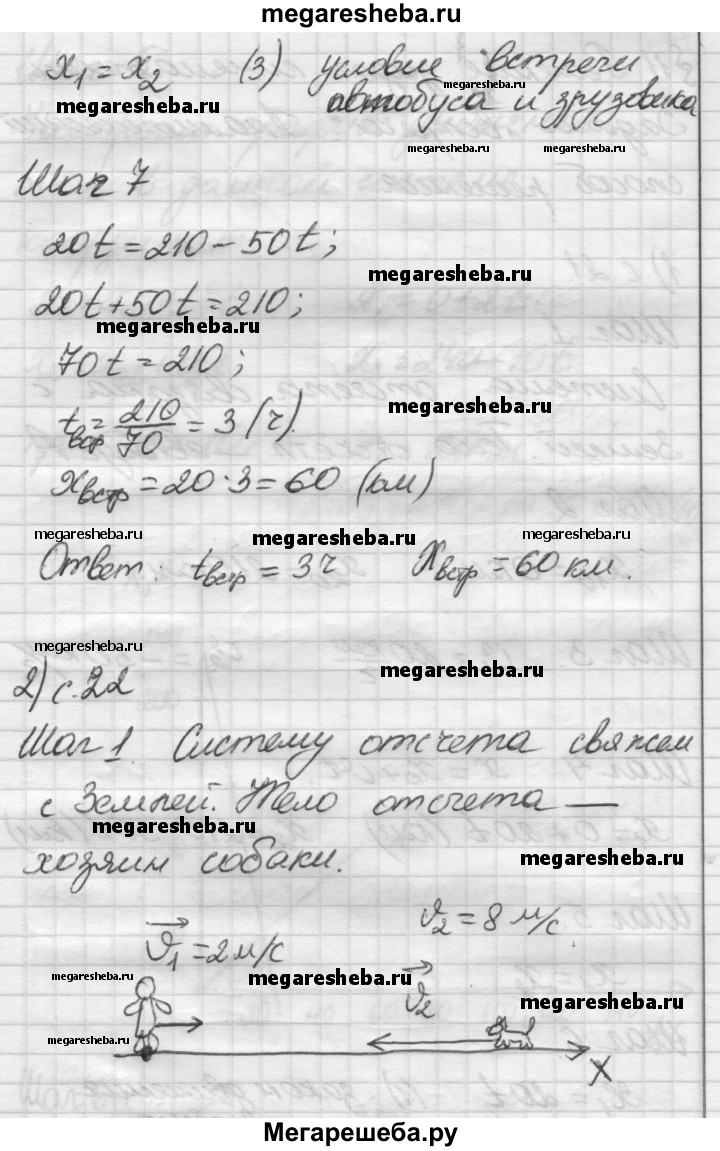 megaresheba.ru
x₁ = x₂ (3) условие встречи
megaresheba.ru
megaresheba.ru автобуса и грузовика
megaresheba.ru megaresheba.ru
Шаг 7
20t = 210 - 50t;
megaresheba.ru
20t + 50t = 210;
megaresheba.ru
70t = 210;
megaresheba.ru
tвср = 210/70 = 3 (ч).
xвстр = 20 · 3 = 60 (км)
megaresheba.ru megaresheba.ru megaresheba.ru
Ответ: tвстр = 3 ч Xвстр = 60 км.
megaresheba.ru
megaresheba.ru
2) с. 22
Шаг 1. Систему отсчета свяжем
с Землей. Тело отсчета —
megaresheba.ru
хозяин собаки.
megaresheba.ru
v₂ = 8 м/с
v₁ = 2 м/с
megaresheba.ru megaresheba.ru
v₂ megaresheba.ru
megaresheba.ru
X
Мегарешеба.ру